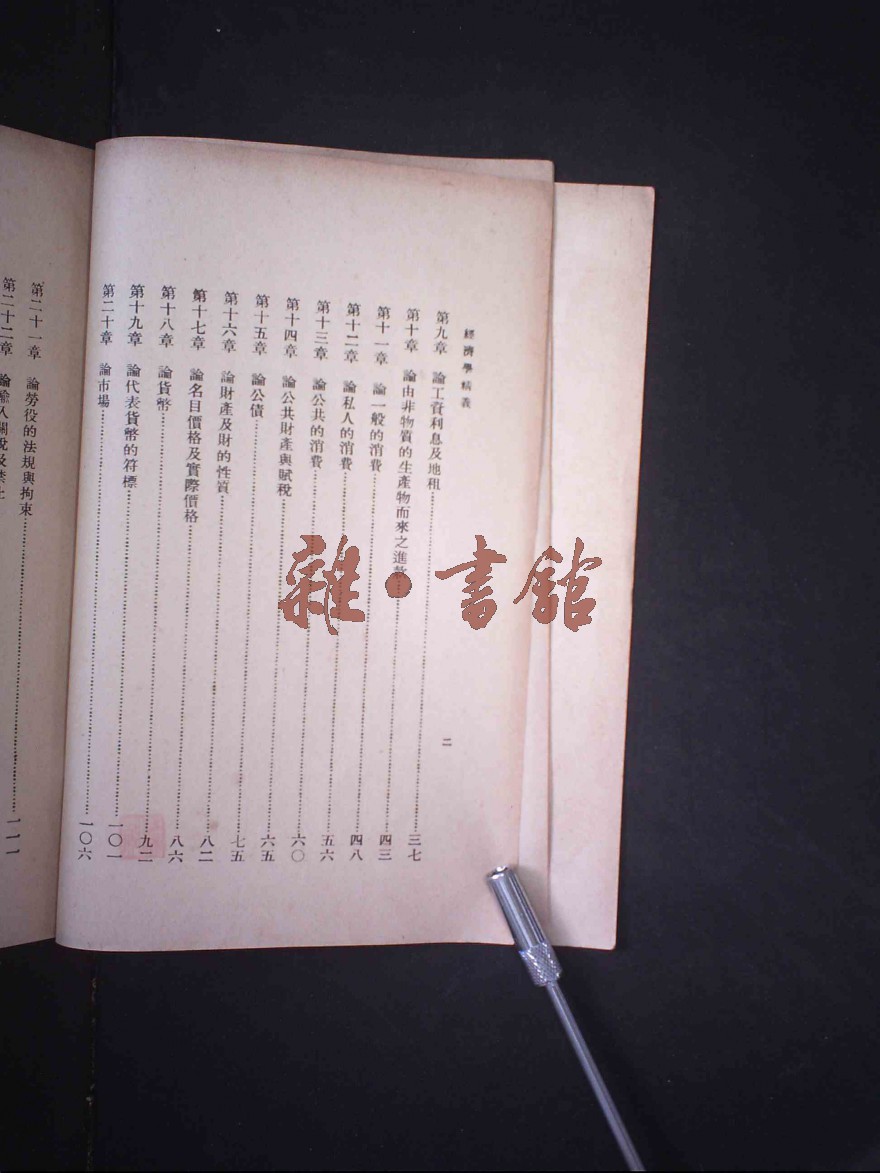 經濟學精義
二
第九章 論工資利息及地租……三七
第十章 論由非物質的生產物而來之進款……四三
第十一章 論一般的消費……四八
第十二章 論私人的消費……五六
第十三章 論公共的消費……六〇
第十四章 論公共財產與賦稅……六五
第十五章 論公債……七五
第十六章 論財產及財的性質……八二
第十七章 論名目價格及實際價格……八六
第十八章 論貨幣……九二
第十九章 論代表貨幣的符標……一〇一
第二十章 論市場……一〇六
第二十一章 論勞役的法規與拘束……一一一
第二十二章 論輸入關稅及禁止
雜·書館